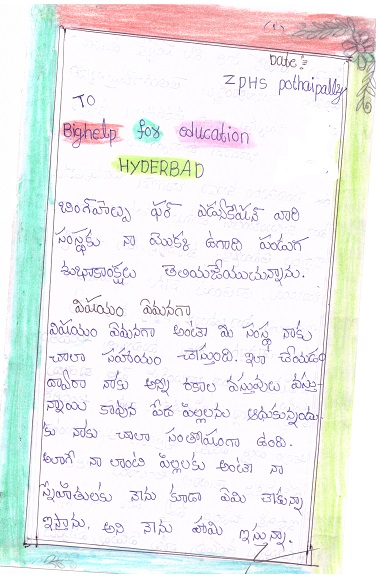 Date:-
ZPHS pothaipally
TO
Bighelp for education
HYDERBAD
బింగ్‌హెల్పు ఫర్ ఎడ్యుకేషన్ వారి
సంస్థకు నా యొక్క ఉగాది పండుగ
శుభాకాంక్షలు తెలియజేయుచున్నాను.
విషయం ఏమనగా
విషయం ఏమనగా అంతా మి సంస్థ నాకు
చాలా సహాయం చేస్తుంది. ఇలా చేయడం
ద్వారా నాకు అన్ని రకాల వస్తువులు వస్తు
న్నాయి కావున పేద పిల్లలను ఆదుకున్నందు
కు నాకు చాలా సంతోషంగా ఉంది.
అలాగే నా లాంటి పిల్లలకు అంతా నా
స్నేహితులకు నాను కూడా ఏమి
ఇస్తాను. అని నాను హామి ఇస్తున్నా.